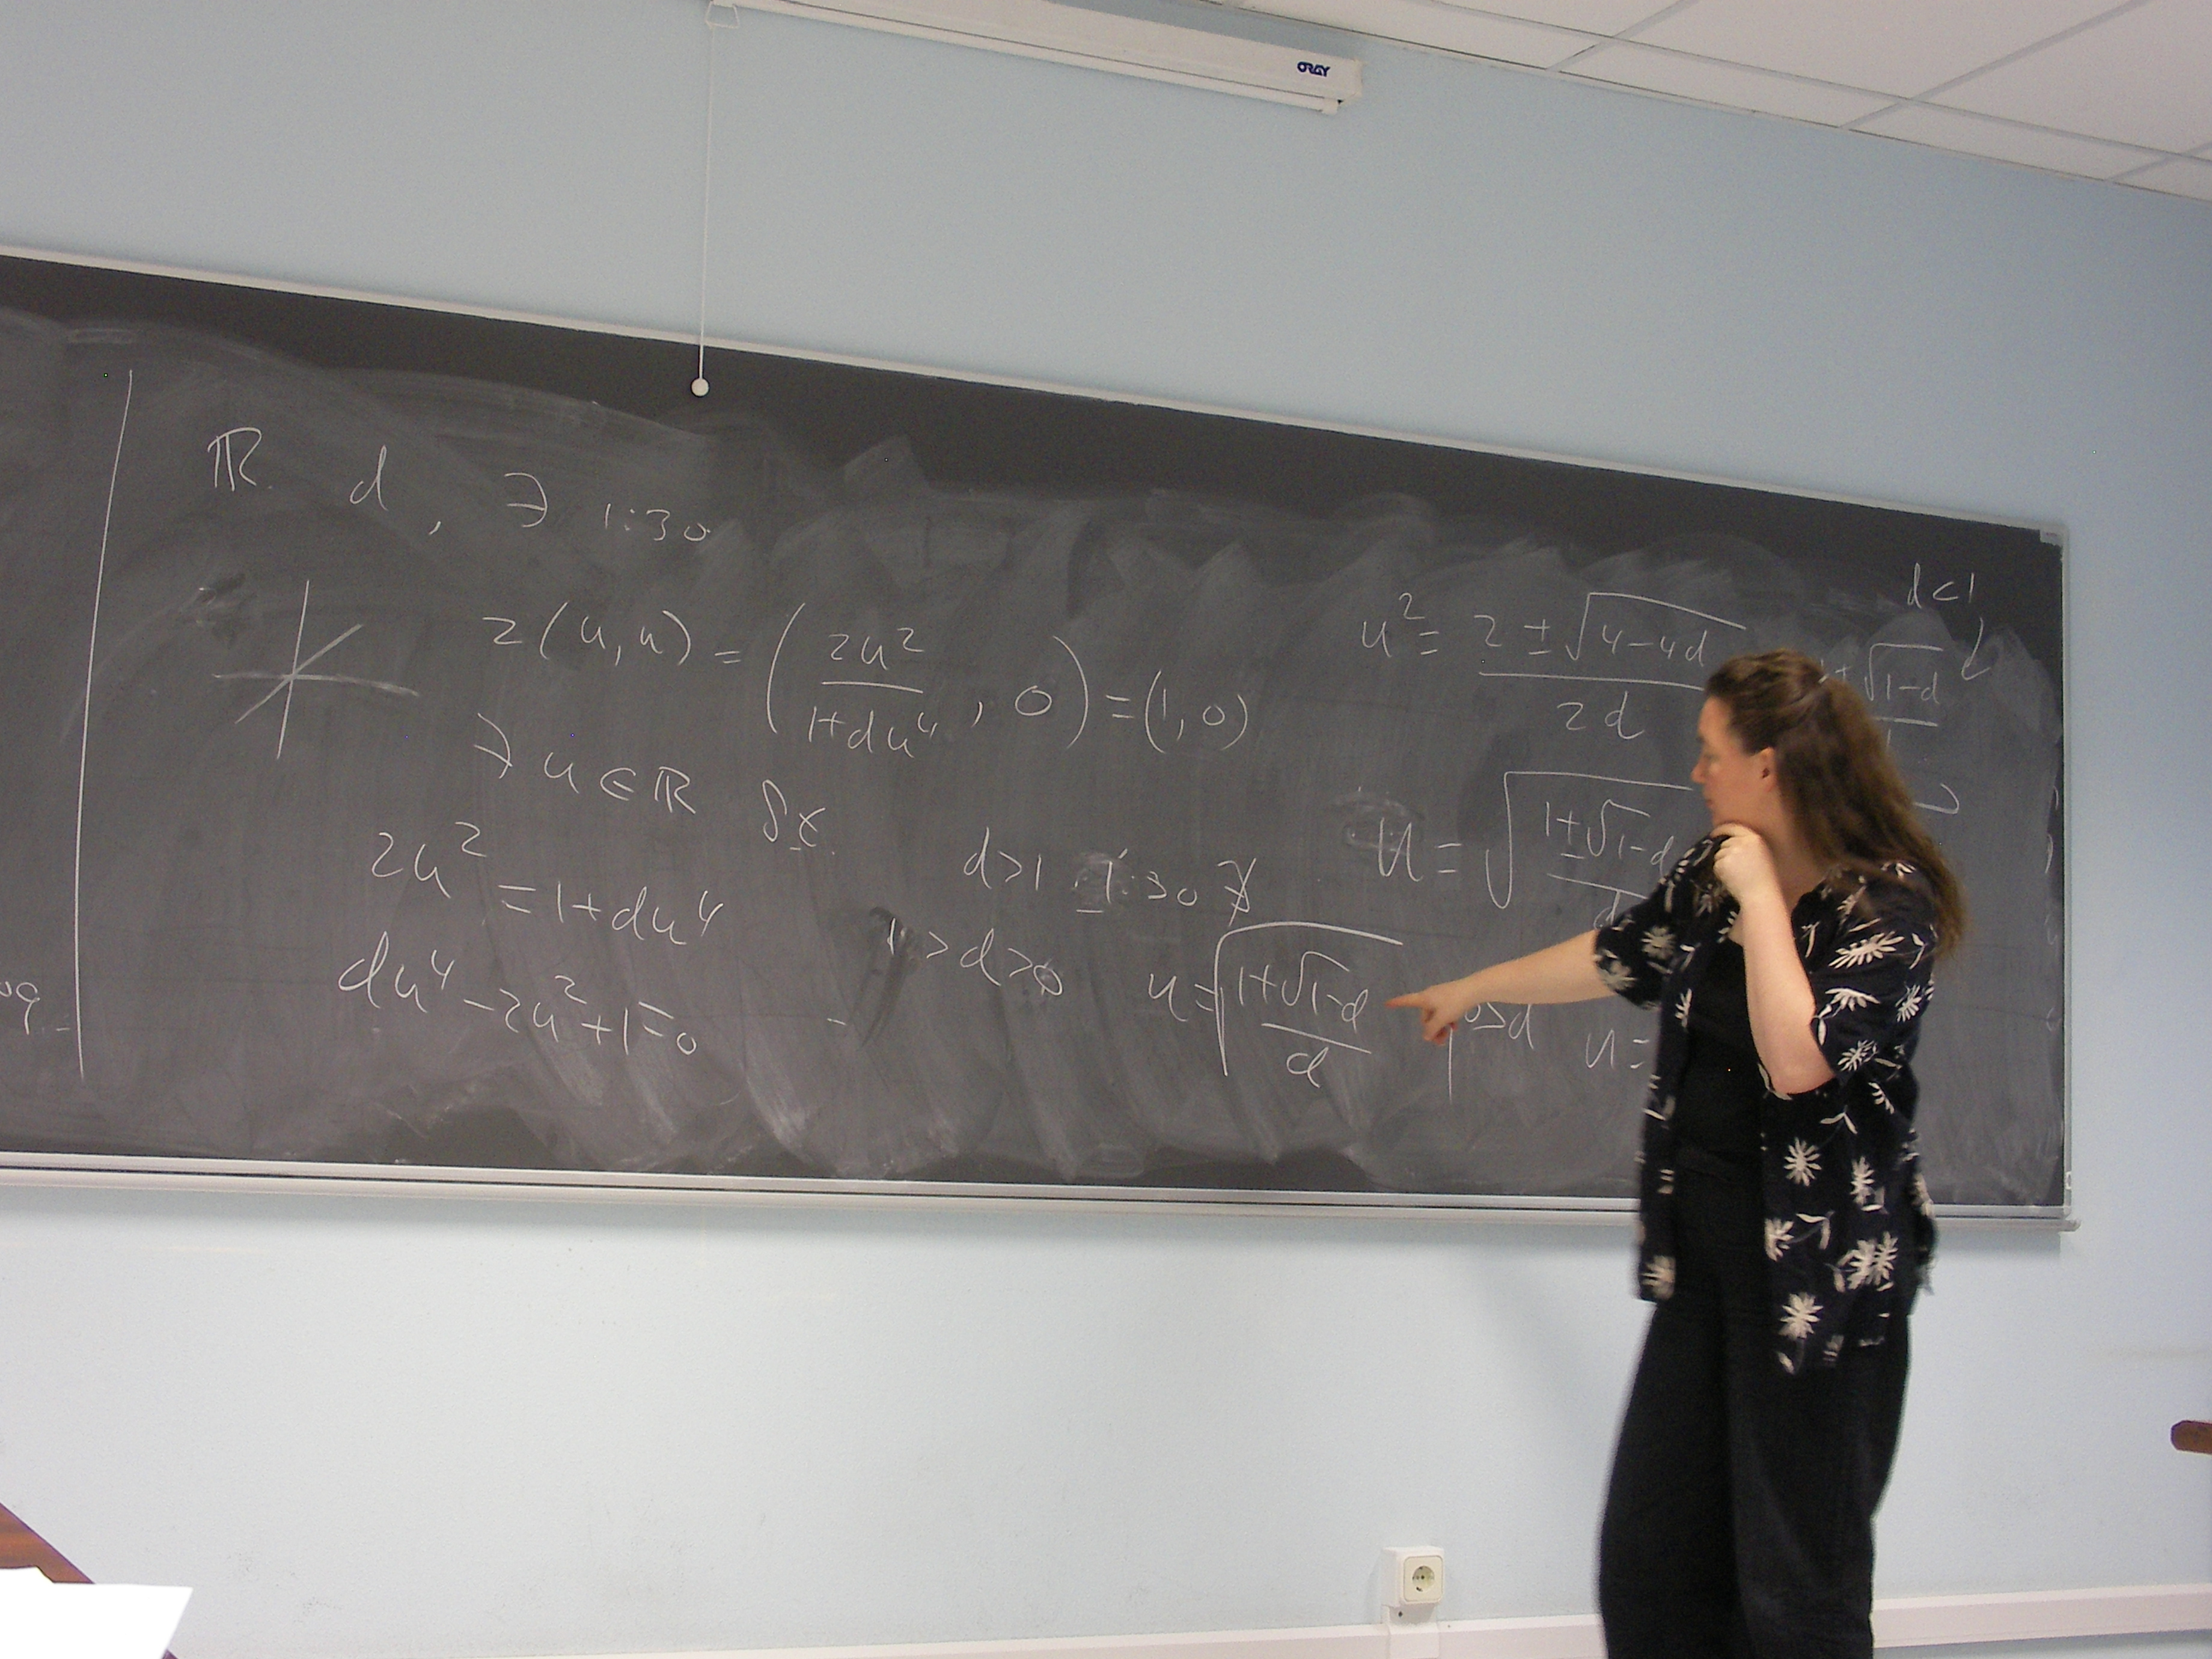 ORAY
ℝ d, ∃ 1:30
2(u,u) = (2u²/(1+du⁴), 0) = (1,0)
∃ u ∈ ℝ
2u² = 1+du⁴
du⁴ - 2u² + 1 = 0
d>1 1:30 ∄
1>d>0 u = √((1+√(1-d))/d)
0>d u=
d<1
u² = (2 ± √(4-4d))/2d
√(1-d)
u = √((1±√(1-d))/d)